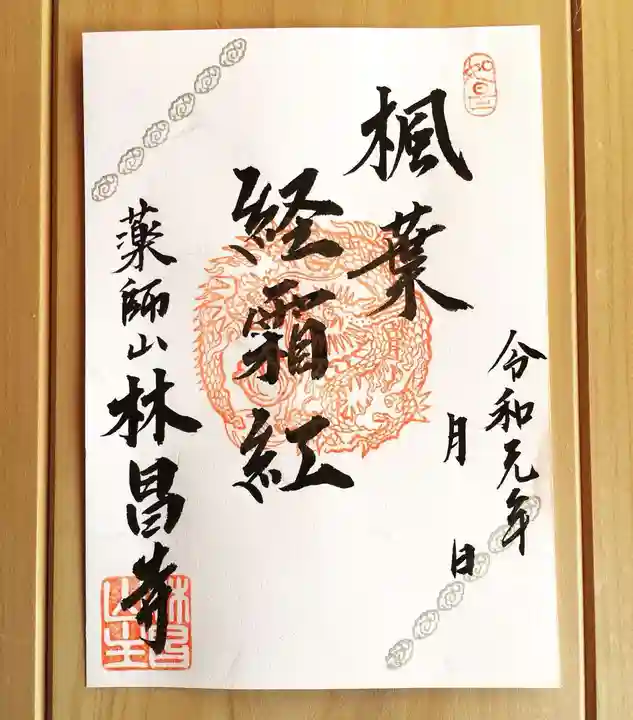 令和元年
月 日
楓葉
経霜紅
薬師山林昌寺